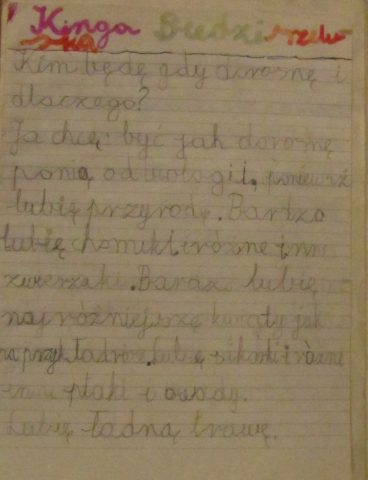 Kinga Biedzi rzew
ska
Kim będę gdy dorosnę i
dlaczego?
Ja chcę być jak dorosnę
panią od biologii. ponieważ
lubię przyrodę. Bardzo
lubię chomiki i różne inne
zwierzaki. Bardzo lubię
najróżniejsze kwiaty jak
na przykład róże. Lubię sikorki i różne
inne ptaki i owady.
Lubię ładną trawę.